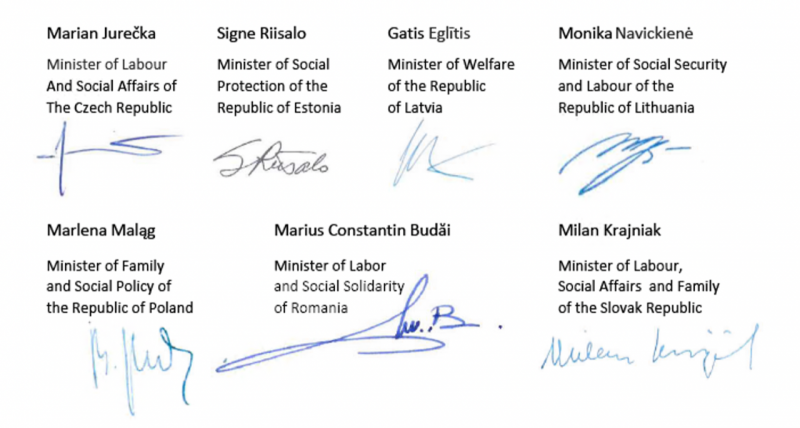 Marian Jurečka
Signe Riisalo
Gatis Eglītis
Monika Navickienė
Minister of Labour
And Social Affairs of
The Czech Republic
Minister of Social
Protection of the
Republic of Estonia
Minister of Welfare
of the Republic
of Latvia
Minister of Social Security
and Labour of the
Republic of Lithuania
S Riisalo
Marlena Maląg
Marius Constantin Budăi
Milan Krajniak
Minister of Family
and Social Policy of
the Republic of Poland
Minister of Labor
and Social Solidarity
of Romania
Minister of Labour,
Social Affairs and Family
of the Slovak Republic
Milan Krajniak